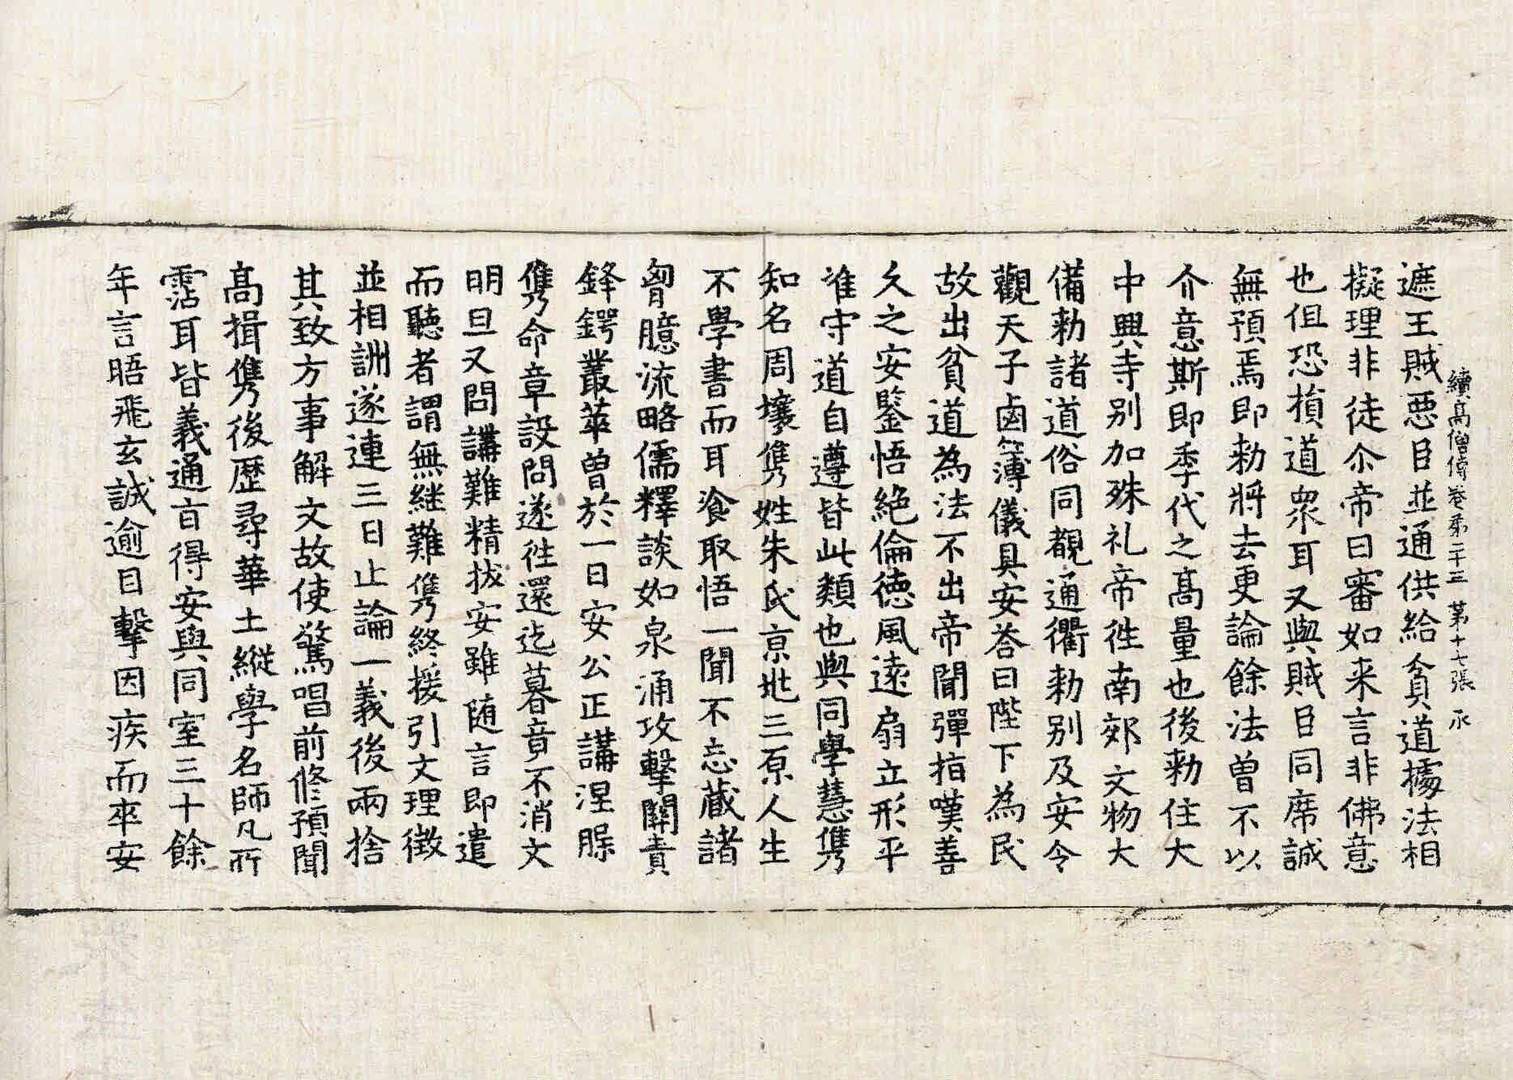 續高僧傳卷第二十三　第十七張　承
遮王賊惡臣並通供給貪道據法相
擬理非徒尒帝曰審如来言非佛意
也但恐損道衆耳又與賊臣同席誠
無預焉即勑將去更論餘法曾不以
介意斯即季代之髙量也後勑住大
中興寺别加殊礼帝徃南郊文物大
備勑諸道俗同覩通衢勑别及安令
觀天子鹵簿儀具安荅曰陛下為民
故出貧道為法不出帝聞彈指嘆善
久之安鑒悟絶倫徳風遠扇立形平
准守道自遵皆此類也與同學慧儁
知名周壤儁姓朱氏京地三原人生
不學書而耳飡取悟一聞不忘蔵諸
胷臆流略儒釋談如泉涌攻擊關責
鋒鍔叢萃曾於一日安公正講涅槃
儁命章設問遂徃還迄暮竟不消文
明旦又問講難精拔安雖随言即遣
而聽者謂無継難儁終援引文理徴
並相詶遂連三日止論一義後兩捨
其致方事解文故使驚唱前修預聞
髙揖儁後歴尋華土縱學名師凡所
霑耳皆義通旨得安與同室三十餘
年言晤飛玄誠逾目擊因疾而卒安